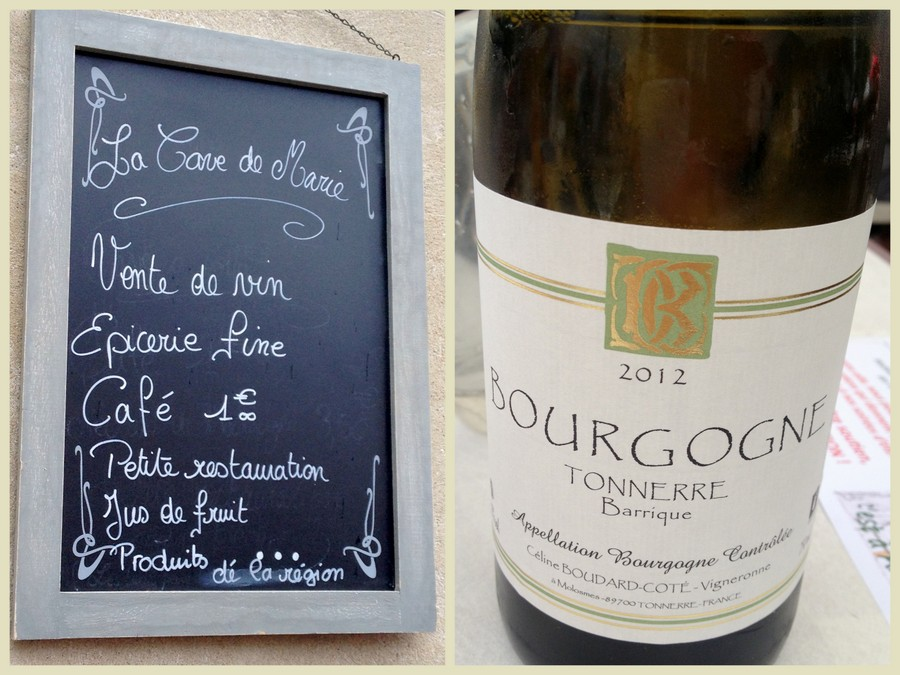 La Cave de Marie
Vente de vin
Epicerie fine
Café 1€00
Petite restauration
Jus de fruit
Produits de la région
2012
BOURGOGNE
TONNERRE
Barrique
Appellation Bourgogne Contrôlée
Céline BOUDARD-COTÉ - Vigneronne
à Molosmes - 89700 TONNERRE - FRANCE